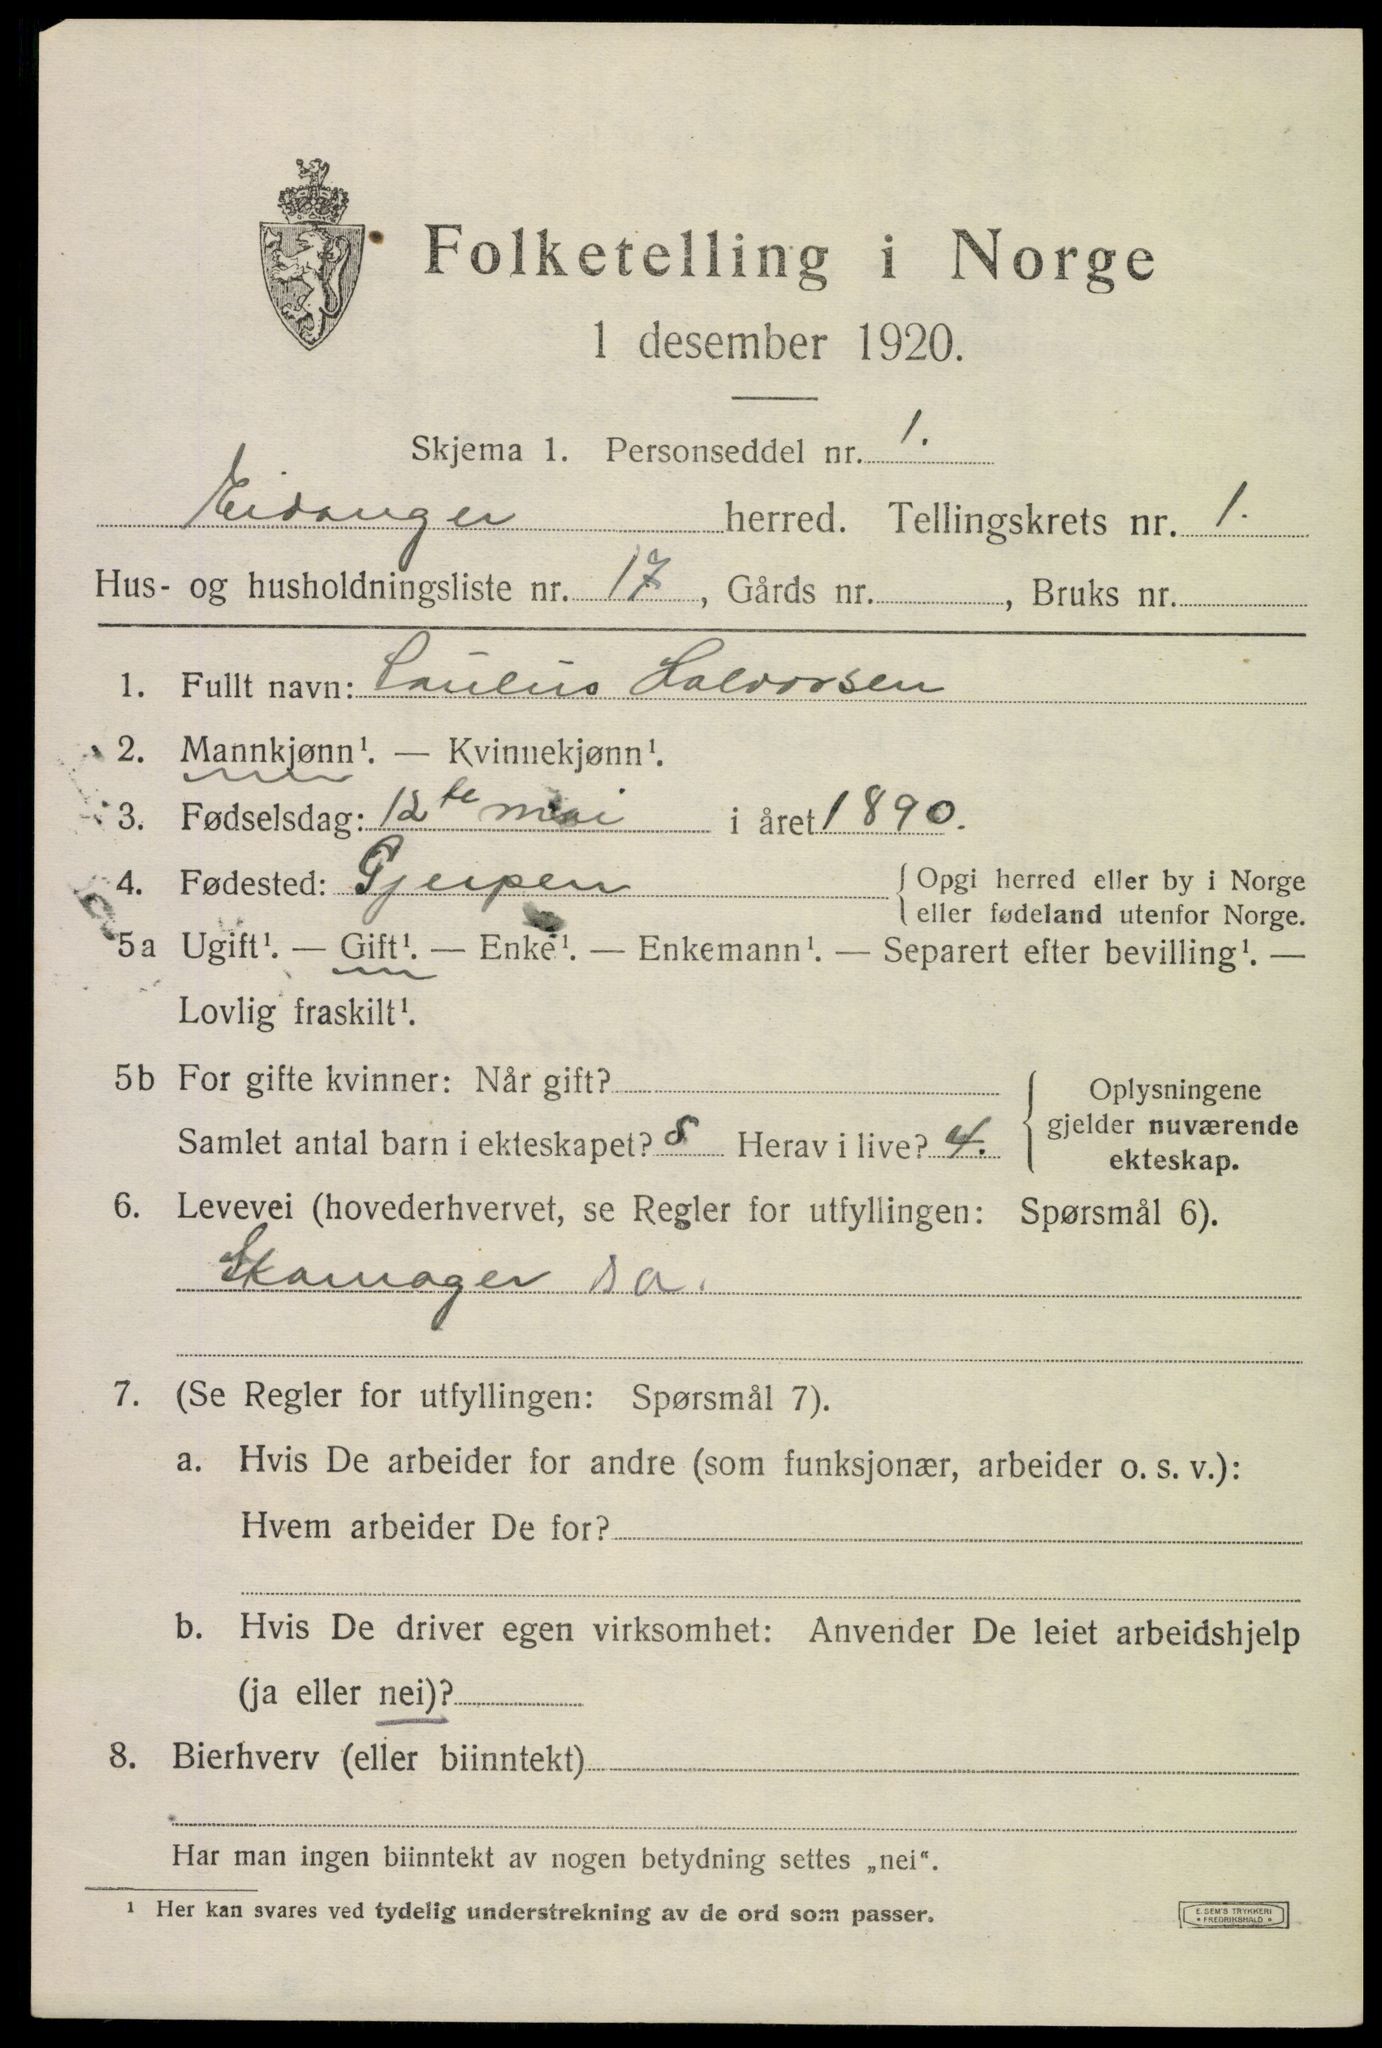 Folketelling i Norge
1 desember 1920.
Skjema 1. Personseddel nr. 1.
Eidanger herred. Tellingskrets nr. 1.
Hus- og husholdningsliste nr. 17, Gårds nr. , Bruks nr.
1. Fullt navn: Paulus Halvorsen
2. Mannkjønn¹. — Kvinnekjønn¹.
3. Fødselsdag: 12te mai i året 1890.
4. Fødested: Gjerpen { Opgi herred eller by i Norge
eller fødeland utenfor Norge.
5a Ugift¹. — Gift¹. — Enke¹. — Enkemann¹. — Separert efter bevilling¹. —
Lovlig fraskilt¹.
5b For gifte kvinner: Når gift?
Samlet antal barn i ekteskapet? 8 Herav i live? 4.
Oplysningene
gjelder nuværende
ekteskap.
6. Levevei (hovederhvervet, se Regler for utfyllingen: Spørsmål 6).
Skomager sa.
7. (Se Regler for utfyllingen: Spørsmål 7).
a. Hvis De arbeider for andre (som funksjonær, arbeider o. s. v.):
Hvem arbeider De for?
b. Hvis De driver egen virksomhet: Anvender De leiet arbeidshjelp
(ja eller nei)?
8. Bierhverv (eller biinntekt)
Har man ingen biinntekt av nogen betydning settes „nei“.
¹ Her kan svares ved tydelig understrekning av de ord som passer.
E. SEM'S TRYKKERI
• FREDRIKSHALD •